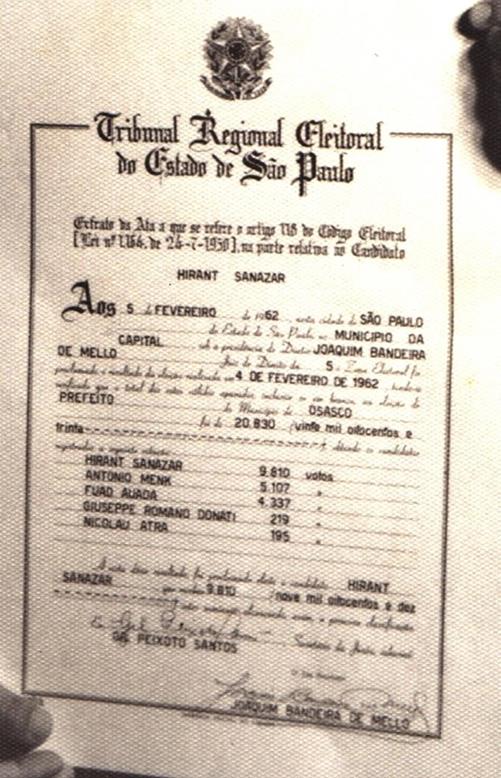 Tribunal Regional Eleitoral
do Estado de São Paulo
Extrato da Ata a que se refere o artigo 118 do Código Eleitoral
[Lei nº 1.164, de 24-7-1950], na parte relativa ao Candidato
HIRANT SANAZAR
Aos 5 de FEVEREIRO de 1962 nesta cidade de SÃO PAULO
do Estado de São Paulo, no MUNICIPIO DA
CAPITAL sob a presidência do Doutor JOAQUIM BANDEIRA
DE MELLO Juiz de Direito da 5 a Zona Eleitoral foi
proclamado o resultado da eleição realizada em 4 DE FEVEREIRO DE 1962
verificado que o total dos votos válidos apurados, inclusive os em branco, na eleição de
PREFEITO do Município de OSASCO
foi de 20.830 /vinte mil oitocentos e
trinta----------------------------/ os candidatos
registrados a seguinte votação:
HIRANT SANAZAR 9.810 votos
ANTONIO MENK 5.107 "
FUAD AUADA 4.337 "
GIUSEPPE ROMANO DONATI 219 "
NICOLAU ATRA 195 "
A vista desse resultado foi proclamado eleito o candidato HIRANT
SANAZAR que recebeu 9.810 /nove mil oitocentos e dez
GIL PEIXOTO SANTOS
JOAQUIM BANDEIRA DE MELLO